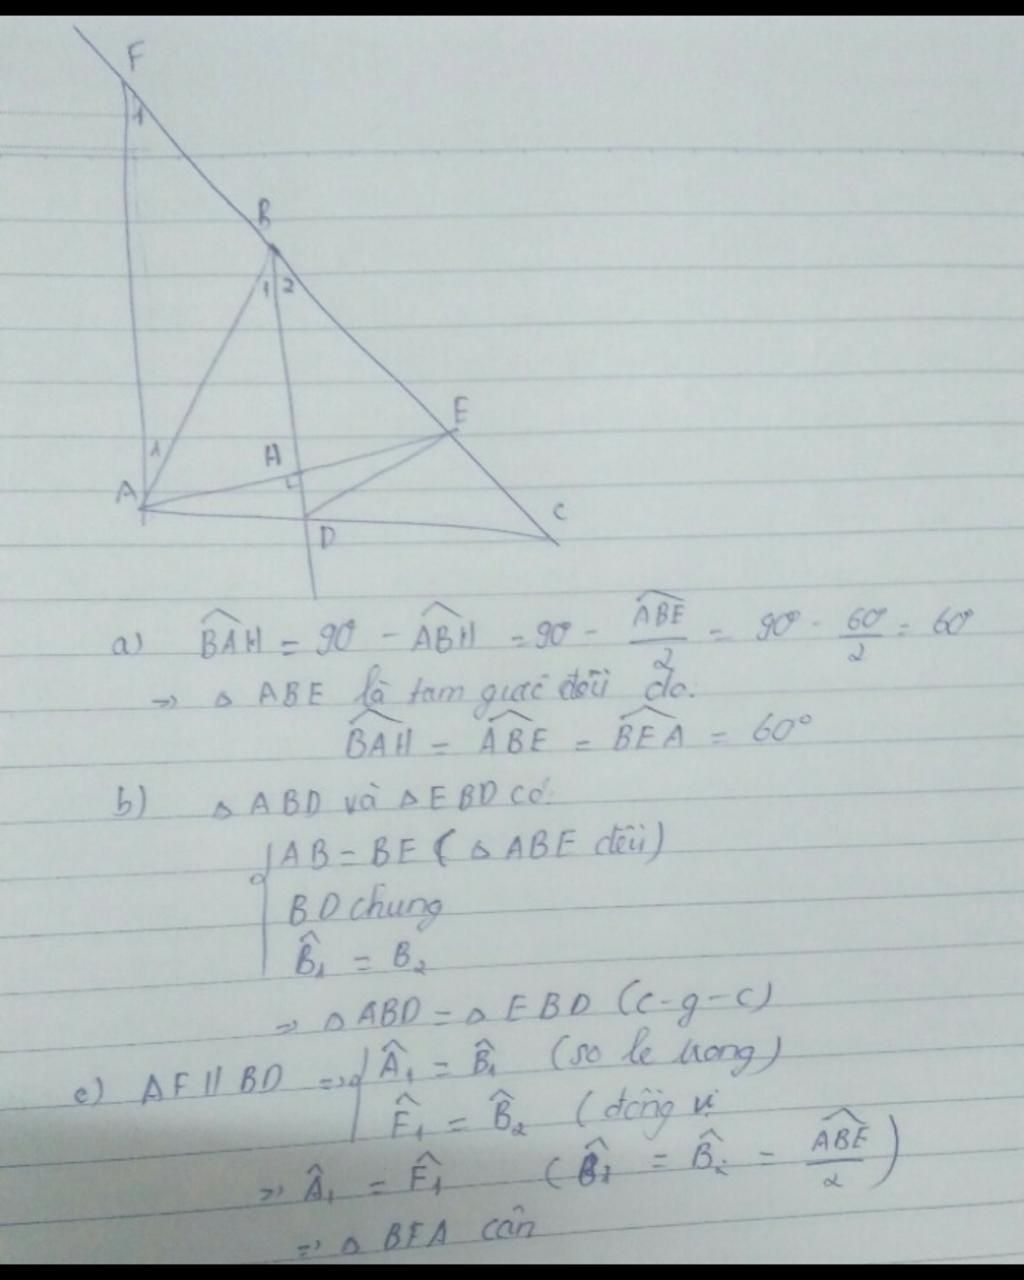 F
1
B
1 2
E
1
H
A
C
D
a) \widehat{BAH} = 90° - \widehat{ABH} = 90° - \frac{\widehat{ABE}}{2} = 90° - \frac{60°}{2} = 60°
=> △ ABE là tam giác đều do.
\widehat{BAH} = \widehat{ABE} = \widehat{BEA} = 60°
b) △ ABD và △ EBD có:
AB = BE ( △ ABE đều)
BD chung
\hat{B}_1 = B_2
=> △ ABD = △ EBD (c-g-c)
c) AF // BD => \hat{A}_1 = \hat{B}_1 (so le trong)
\hat{F}_1 = \hat{B}_2 (đồng vị
=> \hat{A}_1 = \hat{F}_1 ( \hat{B}_1 = \hat{B}_2 = \frac{\widehat{ABE}}{2} )
=> △ BFA cân